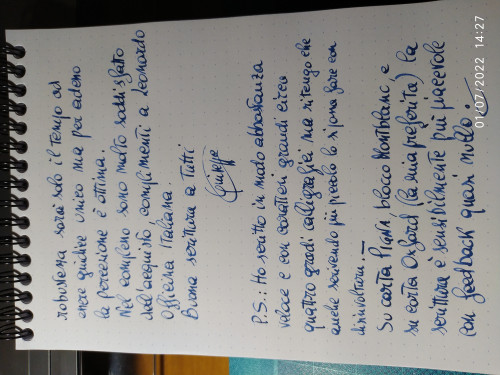 robustezza sarà solo il tempo ad
essere giudice unico ma per adesso
la percezione è ottima.
Nel complesso sono molto soddisfatto
dell'acquisto complimenti a Leonardo
Officina Italiana.
Buona scrittura a Tutti
Giuseppe
P.S.: Ho scritto in modo abbastanza
veloce e con caratteri grandi circa
quattro gradi calligrafici ma ritengo che
anche scrivendo più piccolo lo si possa fare con
disinvoltura.
Su carta Pigna, blocco Montblanc e
su carta Oxford (la mia preferita) la
scrittura è sensibilmente più piacevole
con feedback quasi nullo.
01/07/2022 14:27